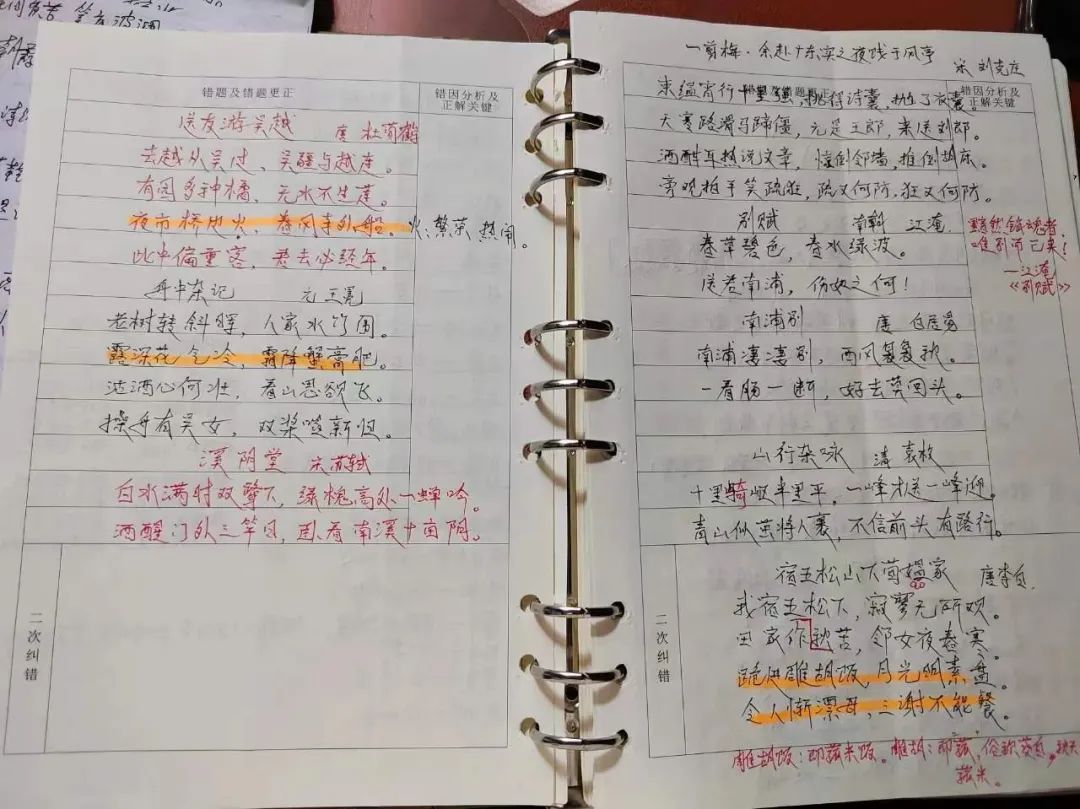 错题及错题更正
错因分析及
正解关键
送友游吴越 唐 杜荀鹤
去越从吴过、吴疆与越连。
有园多种橘、无水不生莲。
夜市桥边火、春风寺外船。
火:繁荣、热闹。
此中偏重客、君去必经年。
舟中杂记 元 王冕
老树转斜晖,人家水竹围。
露深花气冷,霜降蟹膏肥。
沽酒心何壮,看山思欲飞。
操舟有吴女,双桨唱新归。
溪阴堂 宋 苏轼
白水满时双鹭下,绿槐高处一蝉吟。
酒醒门外三竿日,卧看南溪十亩阴。
二次纠错
一剪梅·余赴广东实之夜饯于风亭
宋 刘克庄
错因分析及
正解关键
束缊宵行十里强,挑得诗囊,抛了衣囊。
天寒路滑马蹄僵,元是王郎,来送刘郎。
酒酣耳热说文章,惊倒邻墙,推倒胡床。
旁观拍手笑疏狂,疏又何防,狂又何防。
别赋 南朝 江淹
春草碧色,春水绿波。
送君南浦,伤如之何!
黯然销魂者
唯别而已矣!
—江淹
《别赋》
南浦别 唐 白居易
南浦凄凄别,西风袅袅秋。
一看肠一断,好去莫回头。
山行杂咏 清 袁枚
十里崎岖半里平,一峰才送一峰迎。
青山似茧将人裹,不信前头有路行。
二次纠错
宿五松山下荀媪家 唐 李白
我宿五松下,寂寥无所欢。
田家作秋苦,邻女夜舂寒。
跪进雕胡饭,月光明素盘。
令人惭漂母,三谢不能餐。
雕胡饭:即菰米饭。雕胡:即菰,俗称茭白,秋天
菰米。